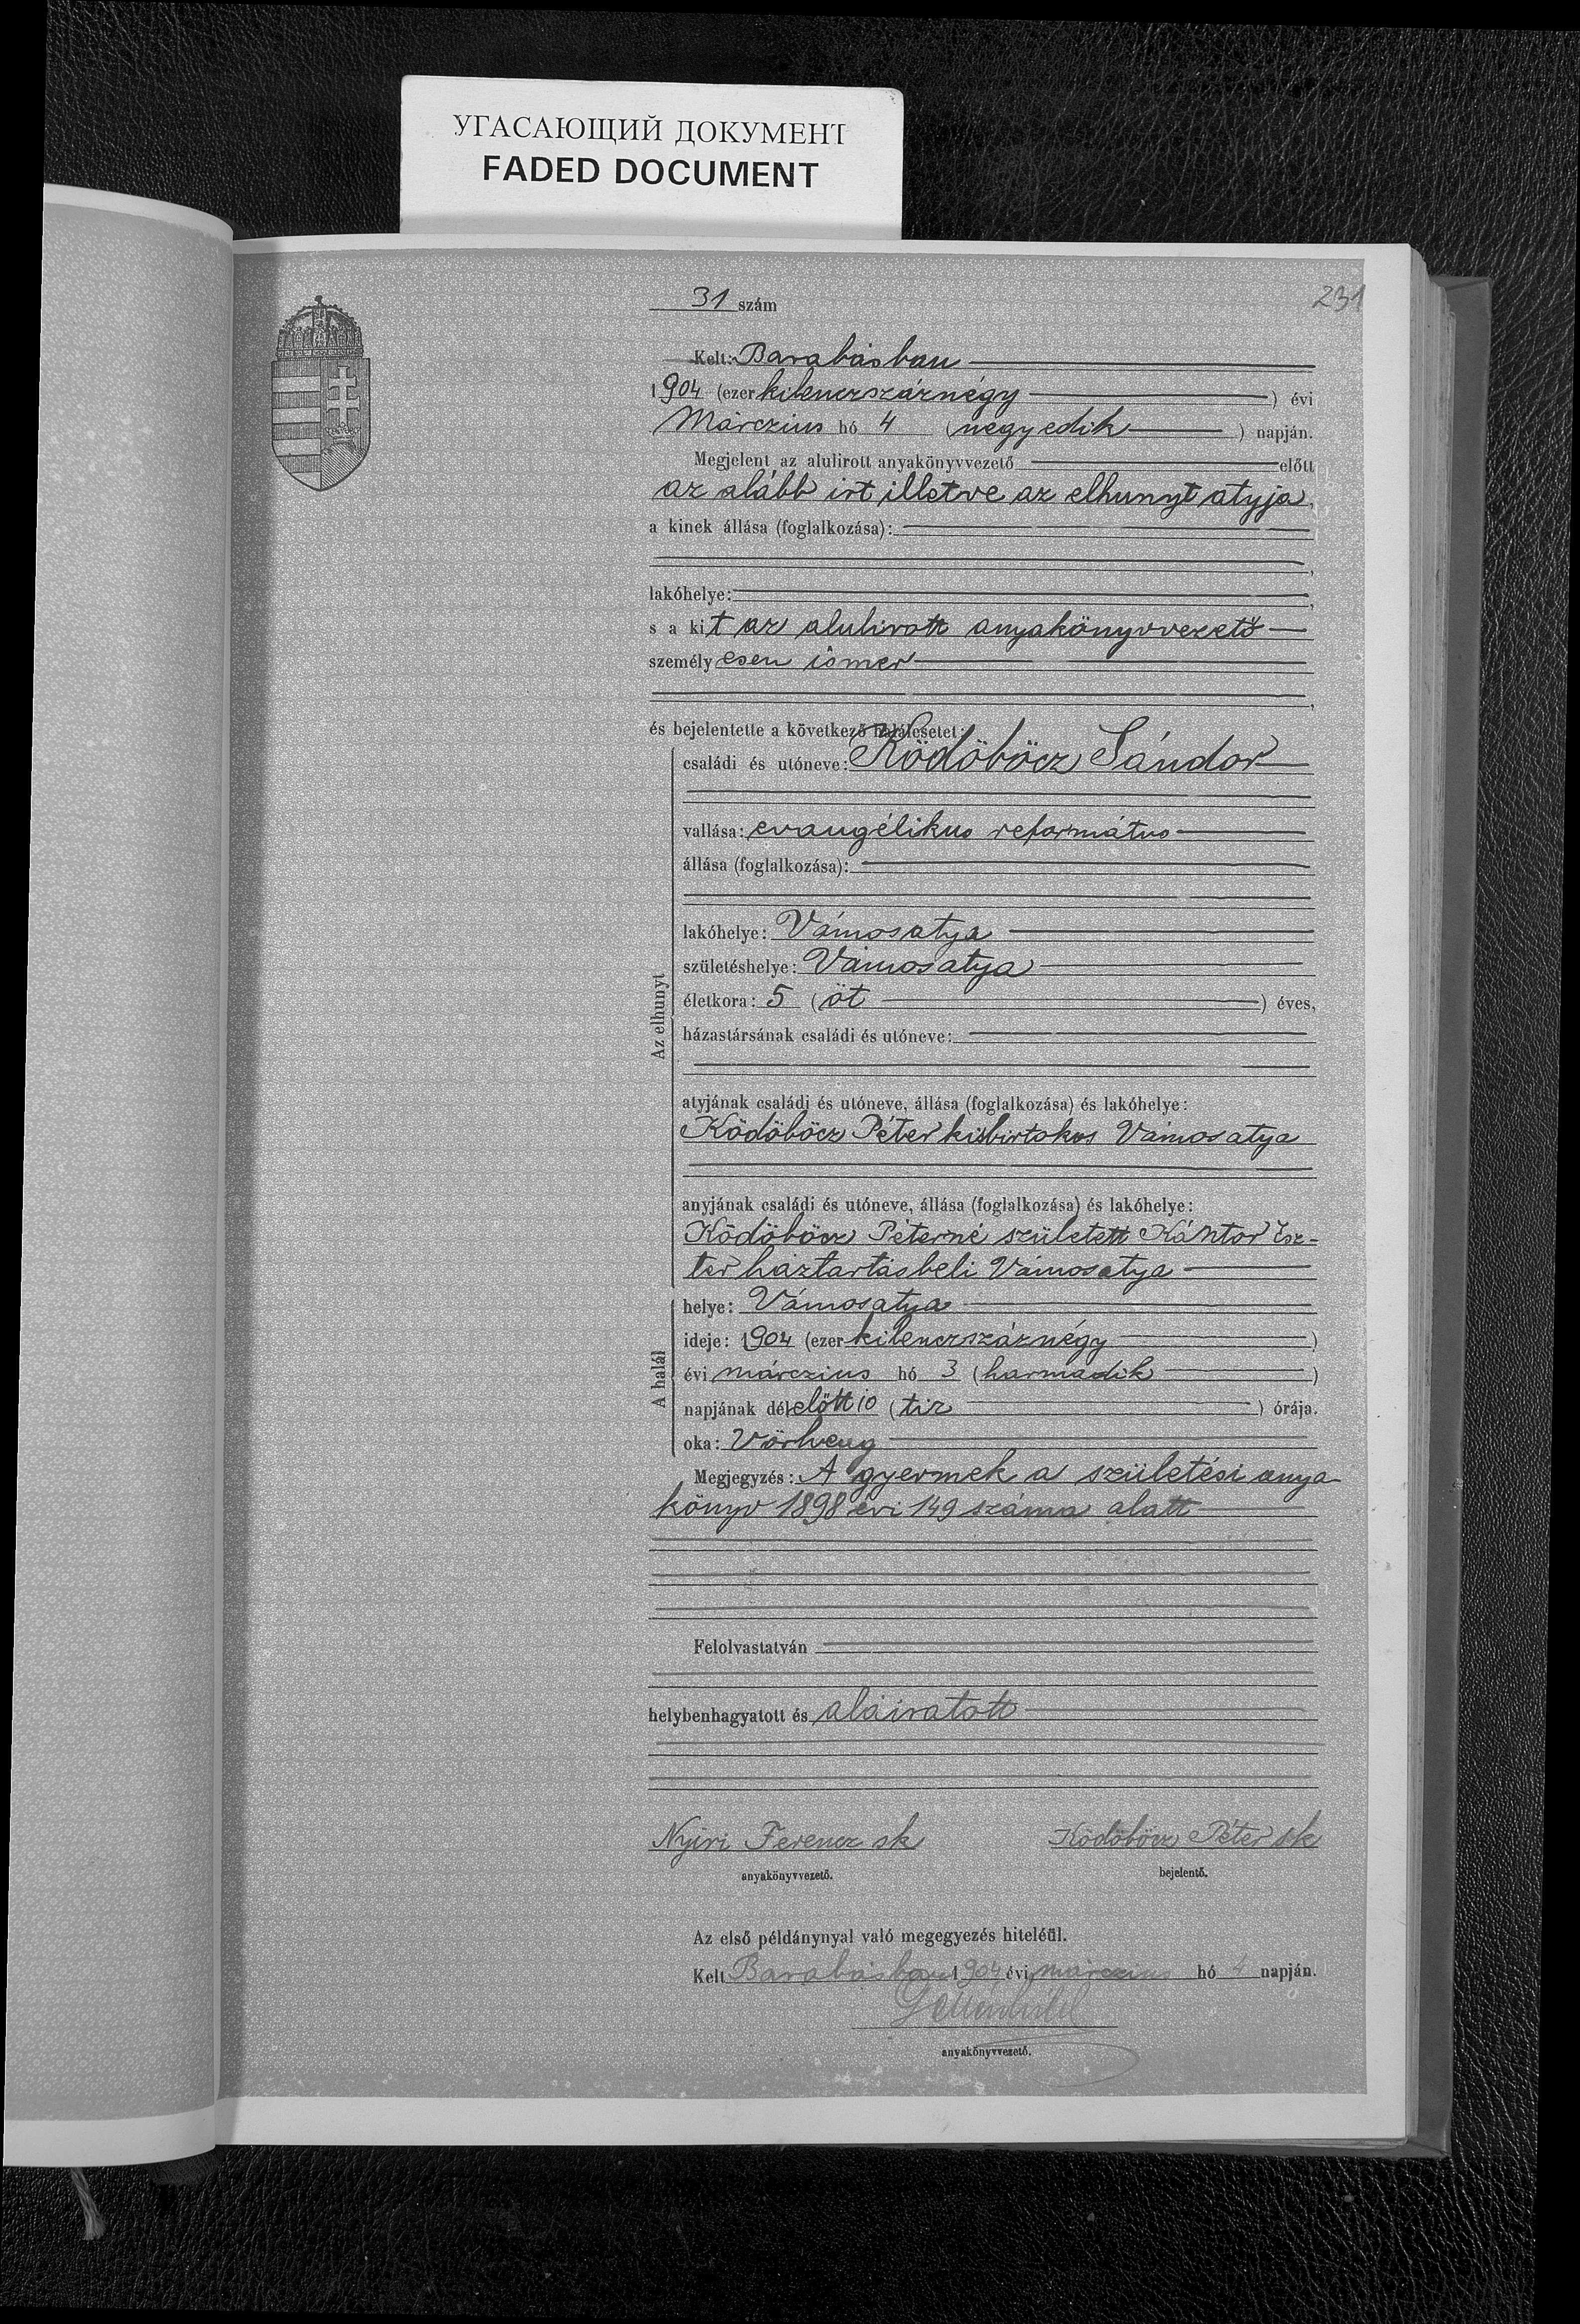 УГАСАЮЩИЙ ДОКУМЕНТ
FADED DOCUMENT
31 szám
231
Kelt: Barabásban
1904 (ezer kilenczszáznégy) évi
Márczius hó 4 (negyedik) napján.
Megjelent az alulirott anyakönyvvezető előtt
az alább irt illetve az elhunyt atyja,
a kinek állása (foglalkozása):
lakóhelye:
s a kit az alulirott anyakönyvvezető
személyesen ismer
és bejelentette a következő halálesetet:
családi és utóneve: Ködöböcz Sándor
vallása: evangélikus református
állása (foglalkozása):
lakóhelye: Vámosatya
születéshelye: Vámosatya
életkora: 5 (öt) éves,
Az elhunyt
házastársának családi és utóneve:
atyjának családi és utóneve, állása (foglalkozása) és lakóhelye:
Ködöböcz Péter kisbirtokos Vámosatya
anyjának családi és utóneve, állása (foglalkozása) és lakóhelye:
Ködöböcz Péterné született Kántor Esz-
ter háztartásbeli Vámosatya
helye: Vámosatya
ideje: 1904 (ezer kilenczszáznégy)
A halál
évi márczius hó 3 (harmadik)
napjának délelőtt 10 (tíz) órája.
oka: Vörheny
Megjegyzés: A gyermek a születési anya
könyv 1898 évi 149 száma alatt
Felolvastatván
helybenhagyatott és aláiratott
Nyiri Ferencz sk
Ködöböcz Péter sk
anyakönyvvezető.
bejelentő.
Az első példánynyal való megegyezés hiteléül.
Kelt Barabásban 1904 évi márczius hó 4 napján.
anyakönyvvezető.